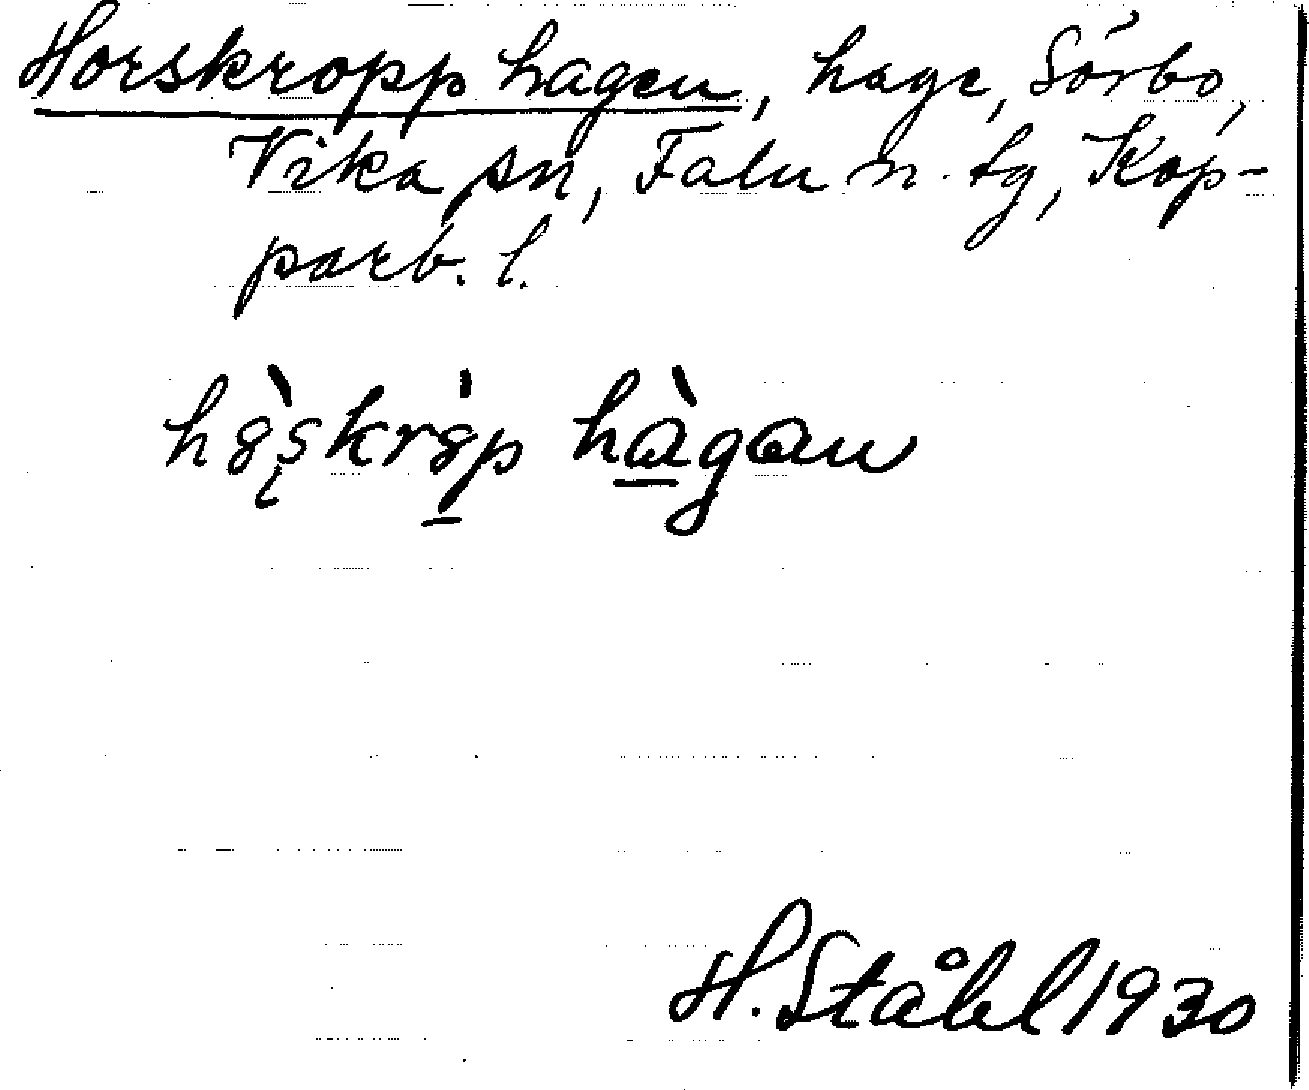 Horskropphagen, hage, Sörbo,
Vika sn, Falu n. tg, Kop-
parb. l.
H. Ståhl 1930